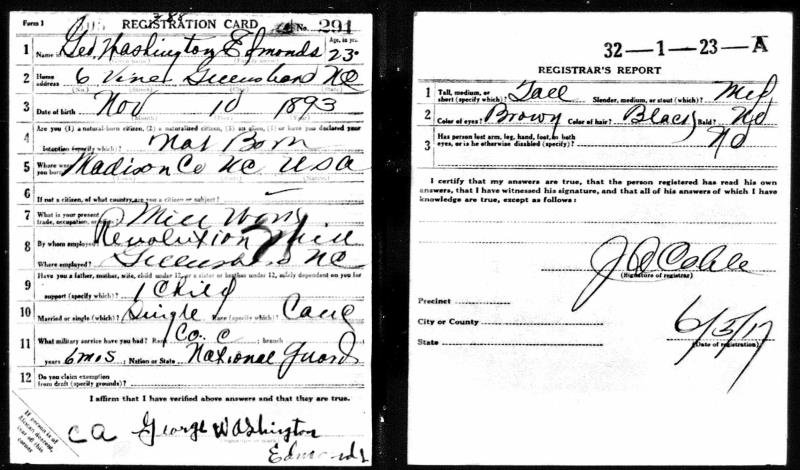 Form 1 REGISTRATION CARD No. 291
1 Name in full Geo. Washington Edmonds Age, in yrs. 23
2 Home address 6 Vine Greensboro NC
3 Date of birth Nov 10 1893
(Month) (Day) (Year)
4 Are you (1) a natural-born citizen, (2) a naturalized citizen, (3) an alien, (4) or have you declared your
intention (specify which)? Nat Born
5 Where were you born? Madison Co NC USA
6 If not a citizen, of what country are you a citizen or subject? –
7 What is your present trade, occupation, or office? Mill Work
8 By whom employed? Revolution Mill
Where employed? Greensboro NC
9 Have you a father, mother, wife, child under 12, or a sister or brother under 12, solely dependent on you for
support (specify which)? 1 Child
10 Married or single (which)? Single Race (specify which)? Cauc
11 What military service have you had? Rank Co. C ; branch
years 6 mos ; Nation or State National Guard
12 Do you claim exemption
from draft (specify grounds)?
I affirm that I have verified above answers and that they are true.
If person is of African descent, tear off this corner
CA George Washington
Edmonds
32—1—23—A
REGISTRAR'S REPORT
1 Tall, medium, or short (specify which)? Tall Slender, medium, or stout (which)? Med
2 Color of eyes? Brown Color of hair? Black Bald? No
3 Has person lost arm, leg, hand, foot, or both
eyes, or is he otherwise disabled (specify)? No
I certify that my answers are true, that the person registered has read his own
answers, that I have witnessed his signature, and that all of his answers of which I have
knowledge are true, except as follows:
J D Coble
(Signature of registrar)
Precinct
City or County
State
6/5/17
(Date of registration)